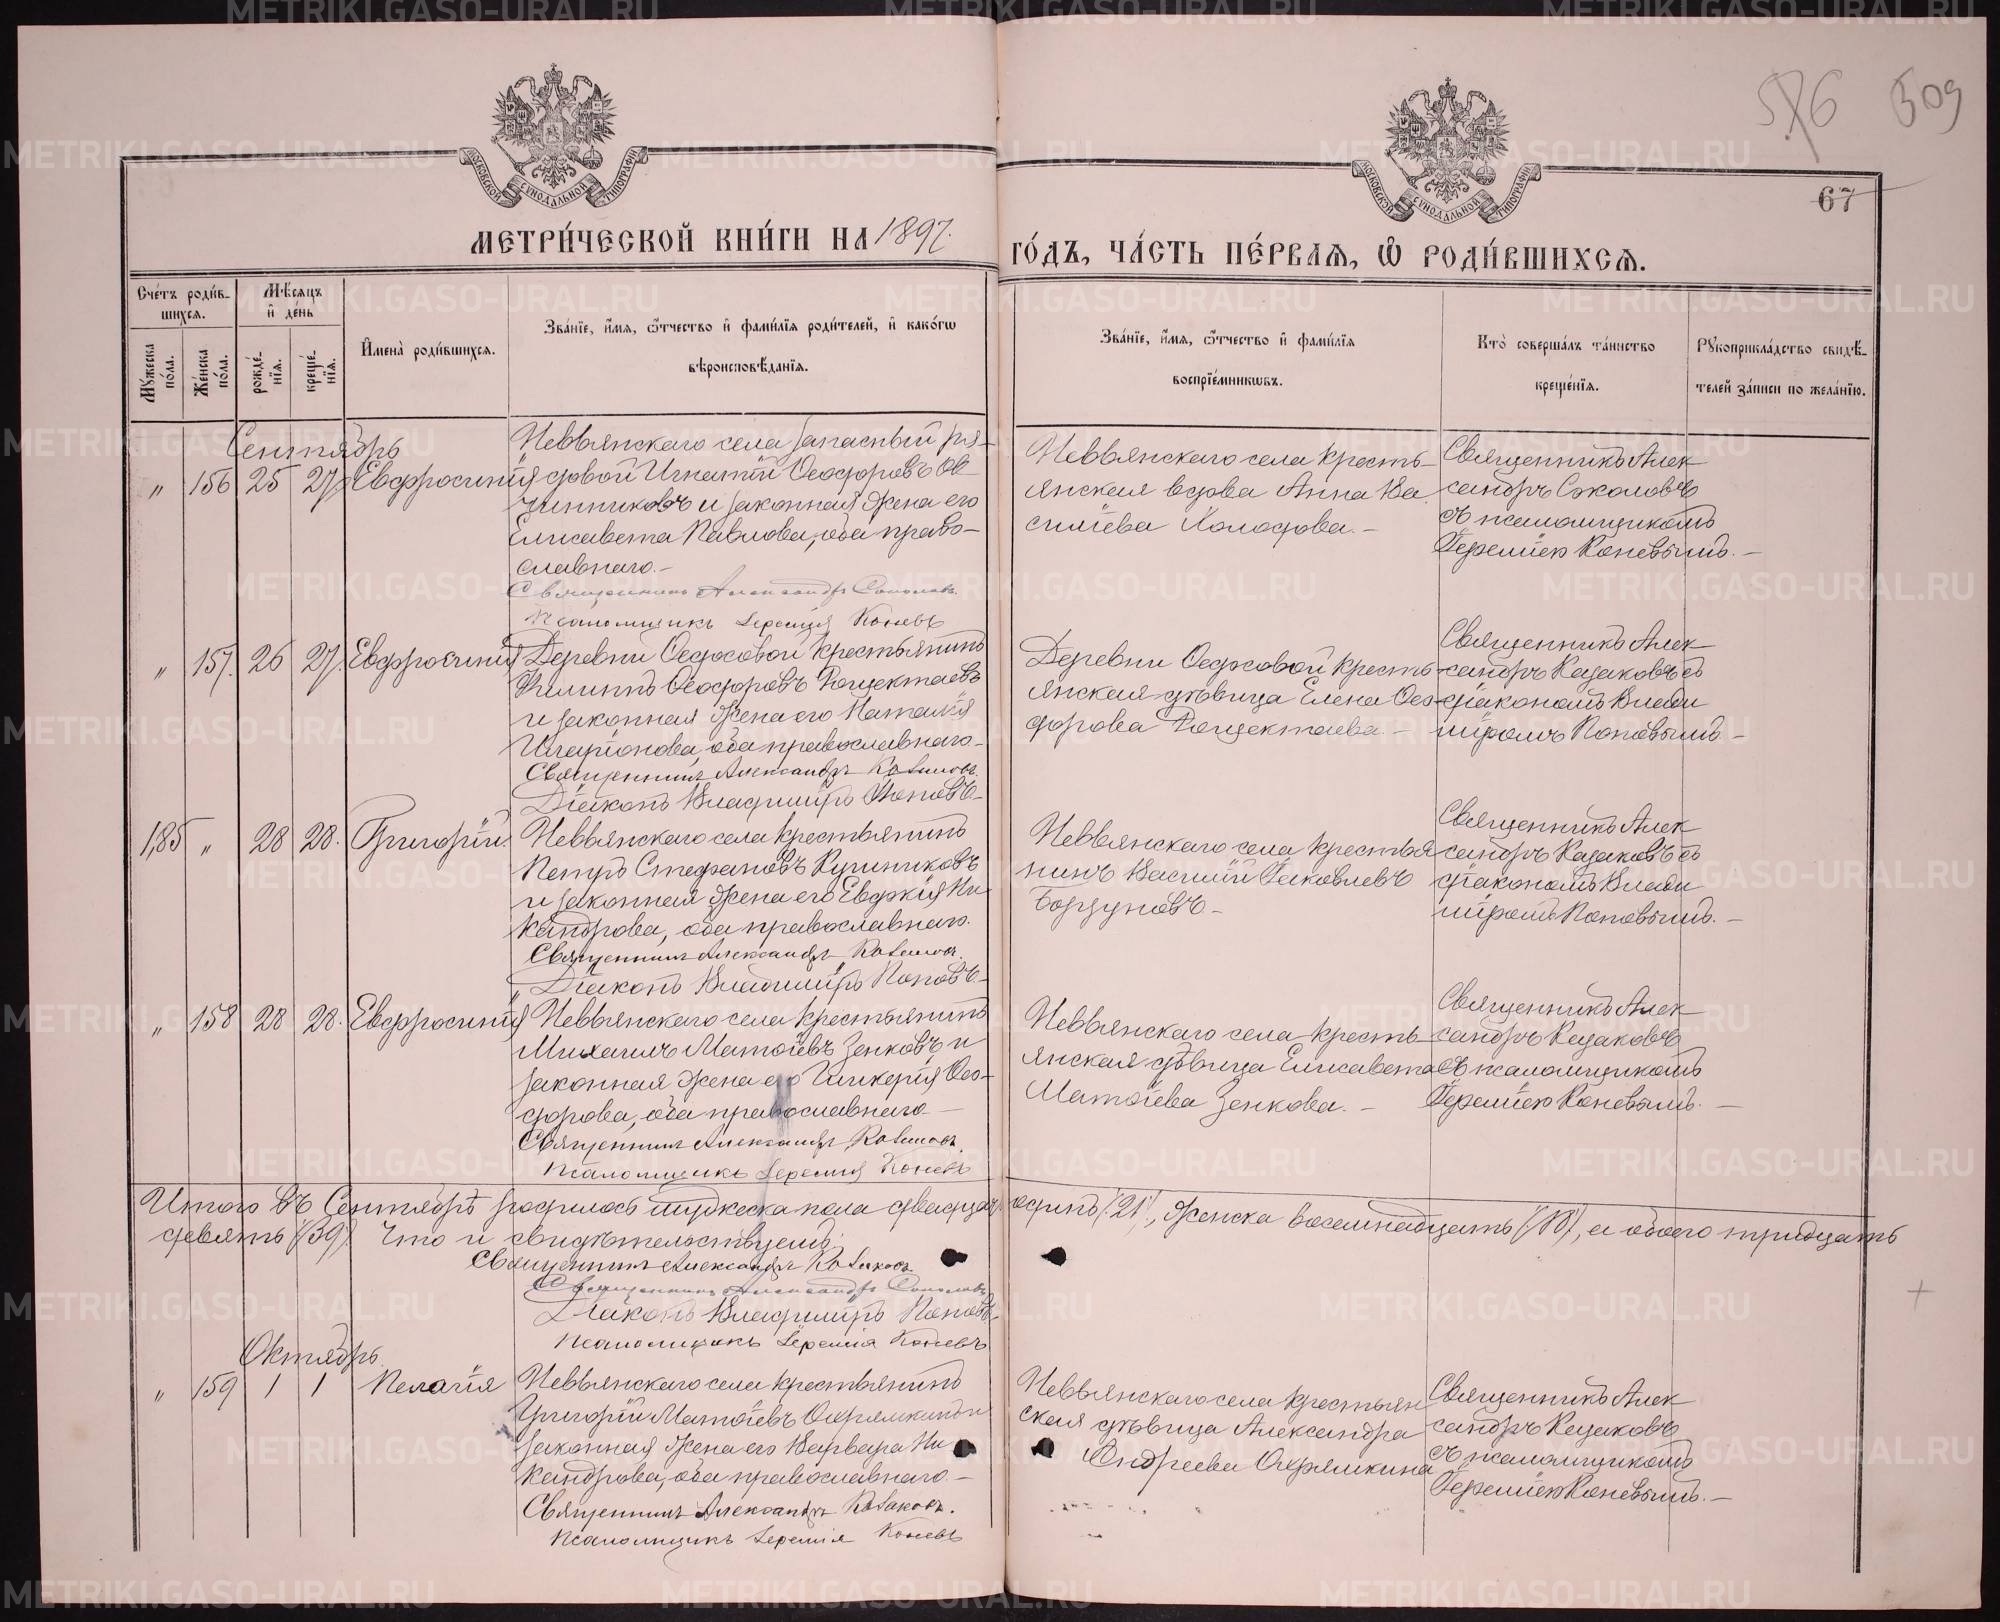 576 509
67
МОСКОВСКОЙ СѴНОДАЛЬНОЙ ТИПОГРАФІИ
МОСКОВСКОЙ СѴНОДАЛЬНОЙ ТИПОГРАФІИ
МЕТРИ́ЧЕСКОЙ КНИ́ГИ НА 1897. ГО́ДЪ, ЧА́СТЬ ПЕ́РВАѦ, Ѽ РОДИ́ВШИХСѦ.
Сче́тъ роди́в-
шихсѧ.
Мꙋ́жеска по́ла.
Же́нска по́ла.
Мѣ́сѧцъ
и҆ де́нь
рожде́-
нїѧ.
креще́-
нїѧ.
И҆мена̀ роди́вшихсѧ.
Зва́нїе, и҆́мѧ, ѻ҆́тчество и҆ фами́лїѧ роди́телей, и҆ како́гѡ
вѣроисповѣ́данїѧ.
Зва́нїе, и҆́мѧ, ѻ҆́тчество и҆ фами́лїѧ
воспрїе́мникѡвъ.
Кто̀ соверша́лъ та́инство
креще́нїѧ.
Рꙋкоприкла́дство свидѣ́-
телей за́писи по жела́нїю.
Сентябрь
„ 156 25 27. Евфросинія
Невьянскаго села запасный ря-
довой Игнатій Ѳеодоровъ Ов-
чинниковъ и законная жена его
Елисавета Павлова, оба право-
славнаго.-
Священникъ Александръ Соколовъ.
Псаломщикъ Іеремія Коневъ
Невьянскаго села кресть-
янская вдова Анна Ва
силіева Холодова. -
Священникъ Алек
сандръ Соколовъ
съ псаломщикомъ
Іереміею Коневымъ. -
„ 157. 26 27. Евфросинія
Деревни Ѳедосовой крестьянинъ
Филиппъ Ѳеодоровъ
и законная жена его Наталія
Иларіонова, оба православнаго.-
Священникъ Александръ Казаковъ.
Діаконъ Владиміръ Поповъ.-
Деревни Ѳедосовой кресть-
янская дѣвица Елена Ѳео-
дорова
Священникъ Алек
сандръ Казаковъ съ
діакономъ Влади
міромъ Поповымъ. -
185 „ 28 28. Григорій.
Невьянскаго села крестьянинъ
Петръ Стефановъ
и законная жена его Евдокія Ни
кандрова, оба православнаго.
Священникъ Александръ Казаковъ.
Діаконъ Владиміръ Поповъ.-
Невьянскаго села крестья
нинъ Василій Іаковлевъ
Борзуновъ -
Священникъ Алек
сандръ Казаковъ съ
діакономъ Влади
міромъ Поповымъ. -
„ 158 28 28. Евфросинія
Невьянскаго села крестьянинъ
Михаилъ Матѳіевъ Зенковъ и
законная жена его Гликерія Ѳео-
дорова, оба православнаго -
Священникъ Александръ Казаковъ.
Псаломщикъ Іеремія Коневъ
Невьянскаго села кресть-
янская дѣвица Елисавета
Матѳіева Зенкова. -
Священникъ Алек
сандръ Казаковъ
съ псаломщикомъ
Іереміею Коневымъ. -
Итого въ Сентябрѣ родилось мужеска пола двадцать одинъ (21), женска восемнадцать (18), а обоего тридцать
девять (39). Что и свидѣтельствуемъ:
Священникъ Александръ Казаковъ
Священникъ Александръ Соколовъ
Діаконъ Владиміръ Поповъ.
Псаломщикъ Іеремія Коневъ
Октябрь.
„ 159 1 1 Пелагія
Невьянскаго села крестьянинъ
Григорій Матѳіевъ Охрямкинъ и
законная жена его Варвара Ни
кандрова, оба православнаго. -
Священникъ Александръ Казаковъ.
Псаломщикъ Іеремія Коневъ
Невьянскаго села крестьян
ская дѣвица Александра
Андреева Охрямкина
Священникъ Алек
сандръ Казаковъ
съ псаломщикомъ
Іереміею Коневымъ. -
METRIKI.GASO-URAL.RU